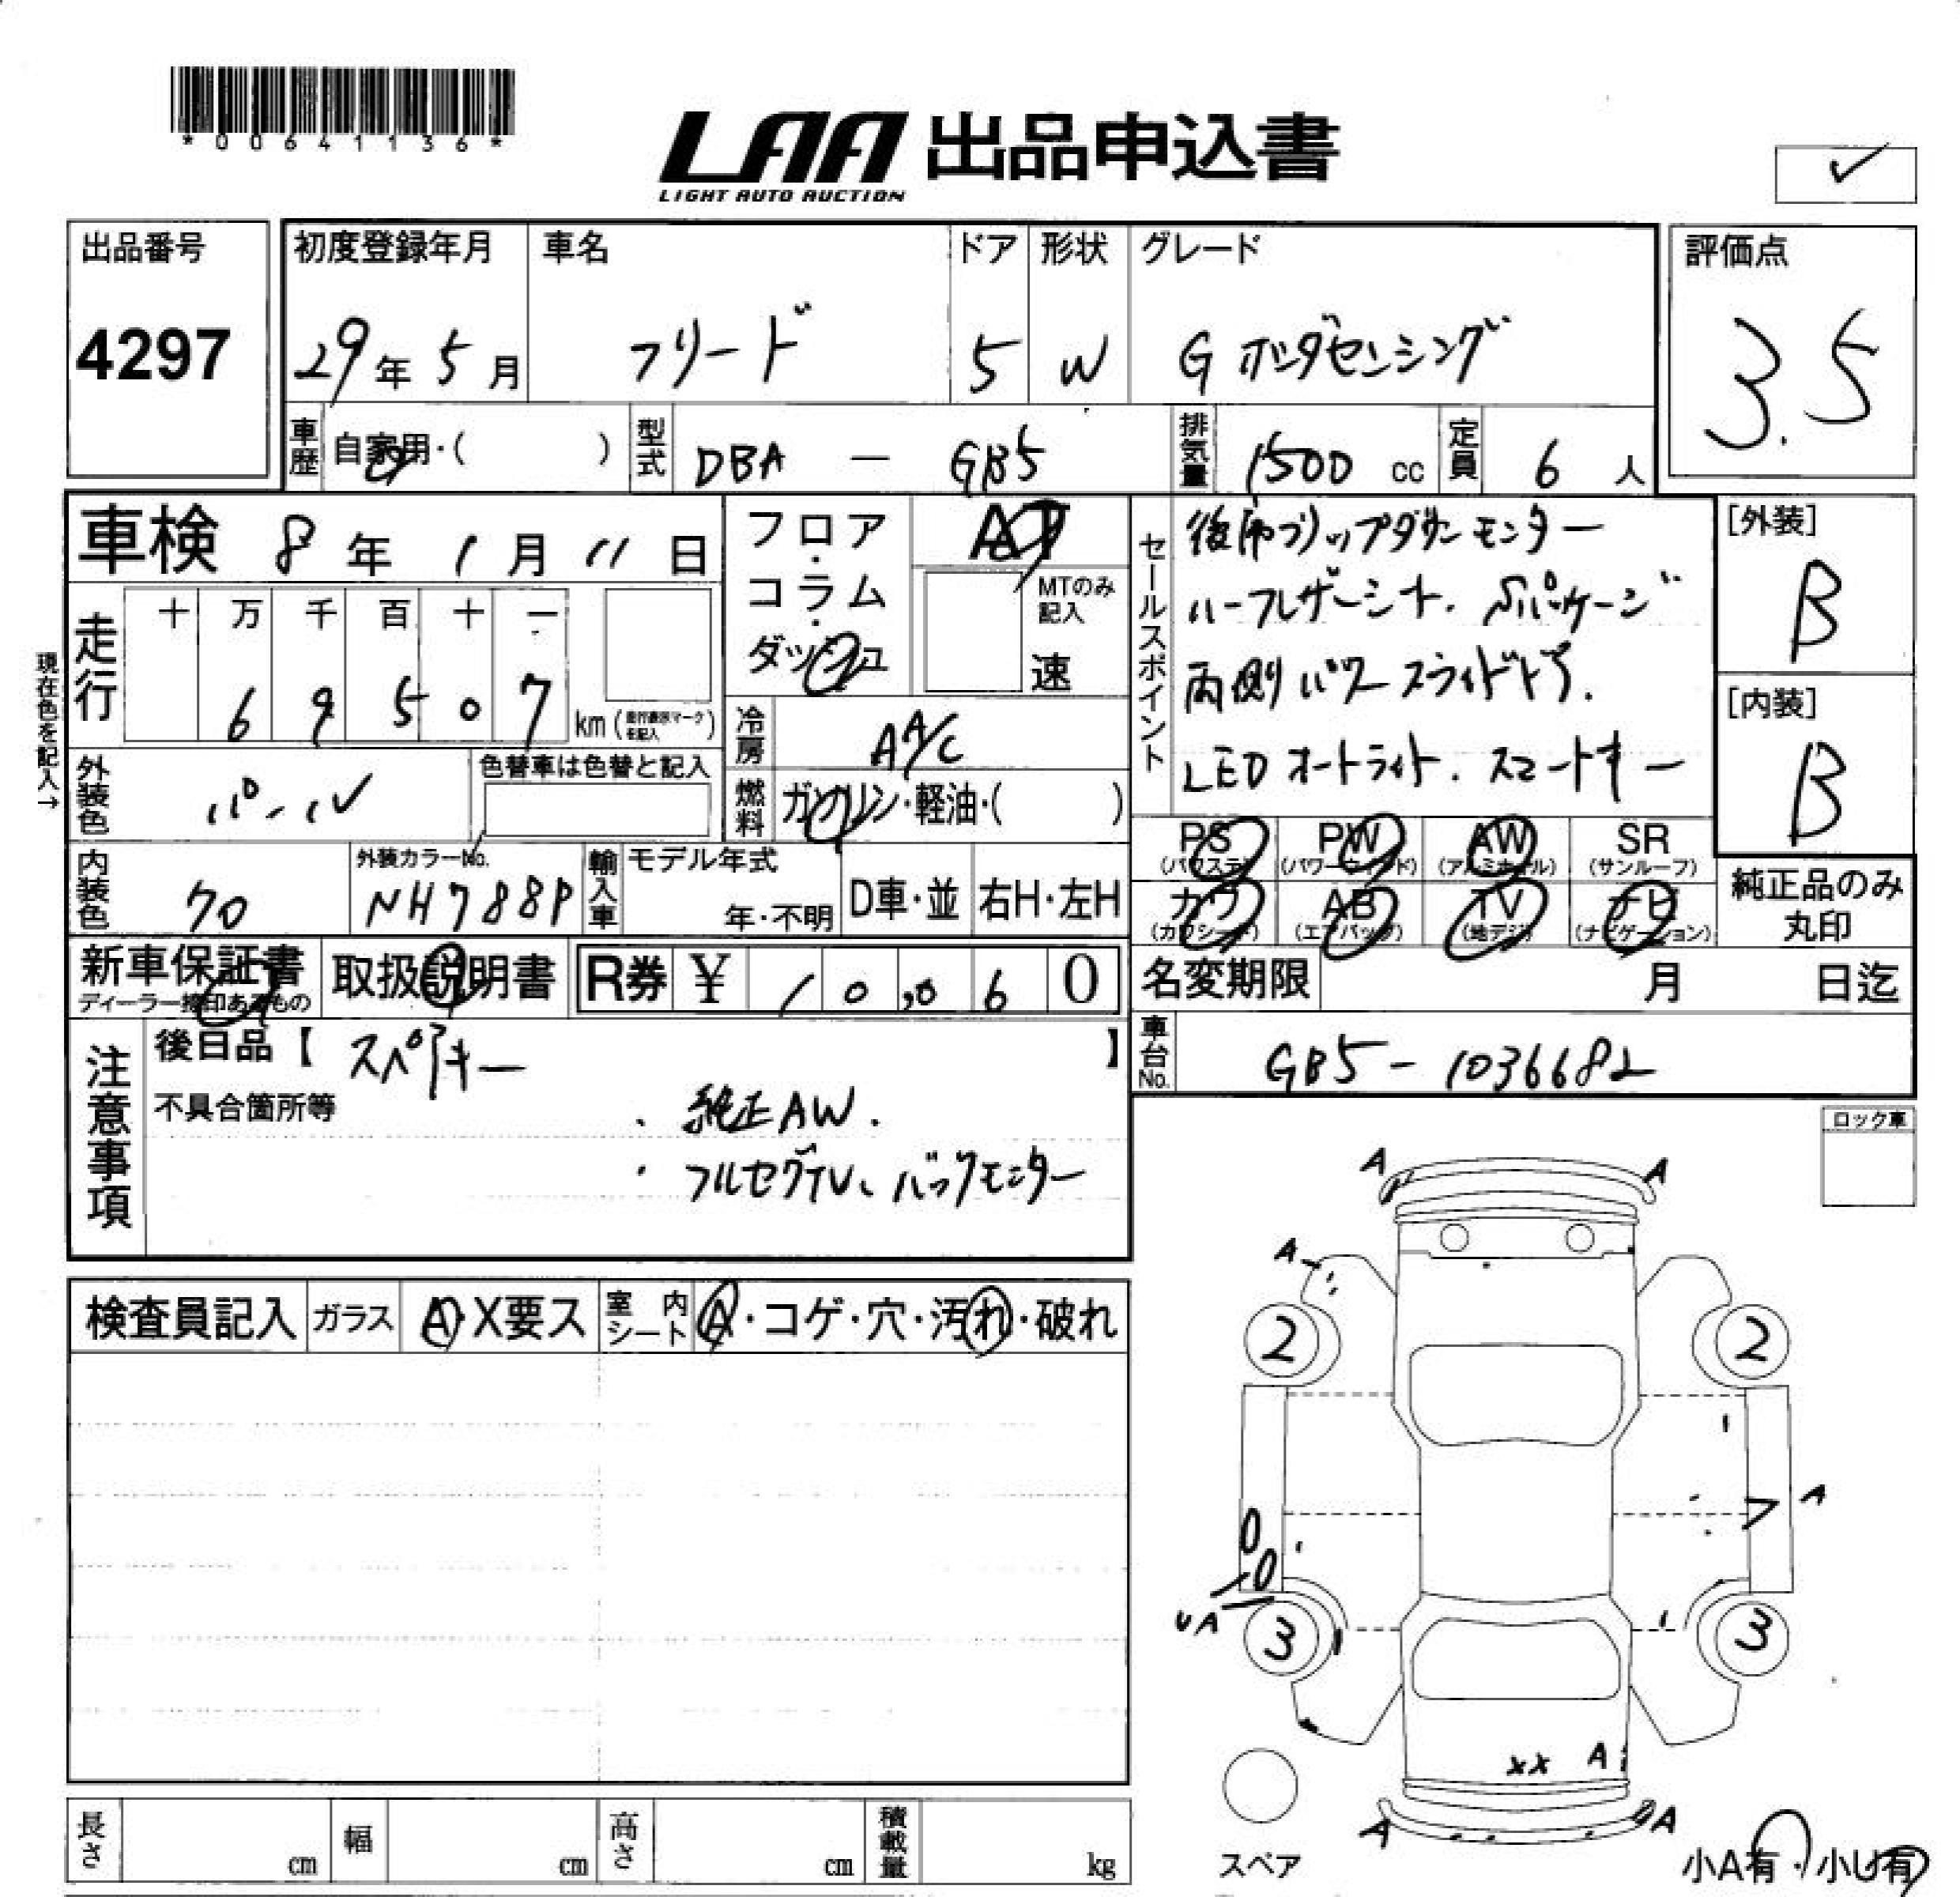 *00641136*
LAA 出品申込書
LIGHT AUTO AUCTION
出品番号
4297
初度登録年月
29年 5月
車名
フリード
ドア
5
形状
W
グレード
G ホンダセンシング
評価点
3.5
車歴 自家用・( )
型式 DBA - GB5
排気量 1500 cc
定員 6 人
車検 8年 1月 11日
フロア・コラム・ダッシュ
AT
MTのみ記入
速
現在色を記入→
走行
十 万 千 百 十 一
6 9 5 0 7 km
冷房 AA/C
外装色 パール
色替車は色替と記入
燃料 ガソリン・軽油・( )
内装色 70
外装カラーNo.
NH788P
輸入車 モデル年式
年・不明
D車・並
右H・左H
セールスポイント
後席フリップダウンモニター
ハーフレザーシート.
両側パワースライドドア.
LEDオートライト. スマートキー
[外装]
B
[内装]
B
PS (パワステ)
PW (パワーウィンド)
AW (アルミホイル)
SR (サンルーフ)
カワ (カワシート)
AB (エアバッグ)
TV (地デジ)
ナビ (ナビゲーション)
純正品のみ丸印
新車保証書
ディーラー捺印あるもの
取扱説明書
R券 ¥ 10,060
名変期限 月 日迄
車台No. GB5-1036682
注意事項
後日品【 スペアキー 】
不具合箇所等
・純正AW.
・フルセグTV、バックモニター
ロック車
検査員記入
ガラス A・X要ス
室内シート A・コゲ・穴・汚れ・破れ
A A
A
2 2
A
UA
3 3
XX A
A A
スペア
小A有・小U有
長さ cm
幅 cm
高さ cm
積載量 kg